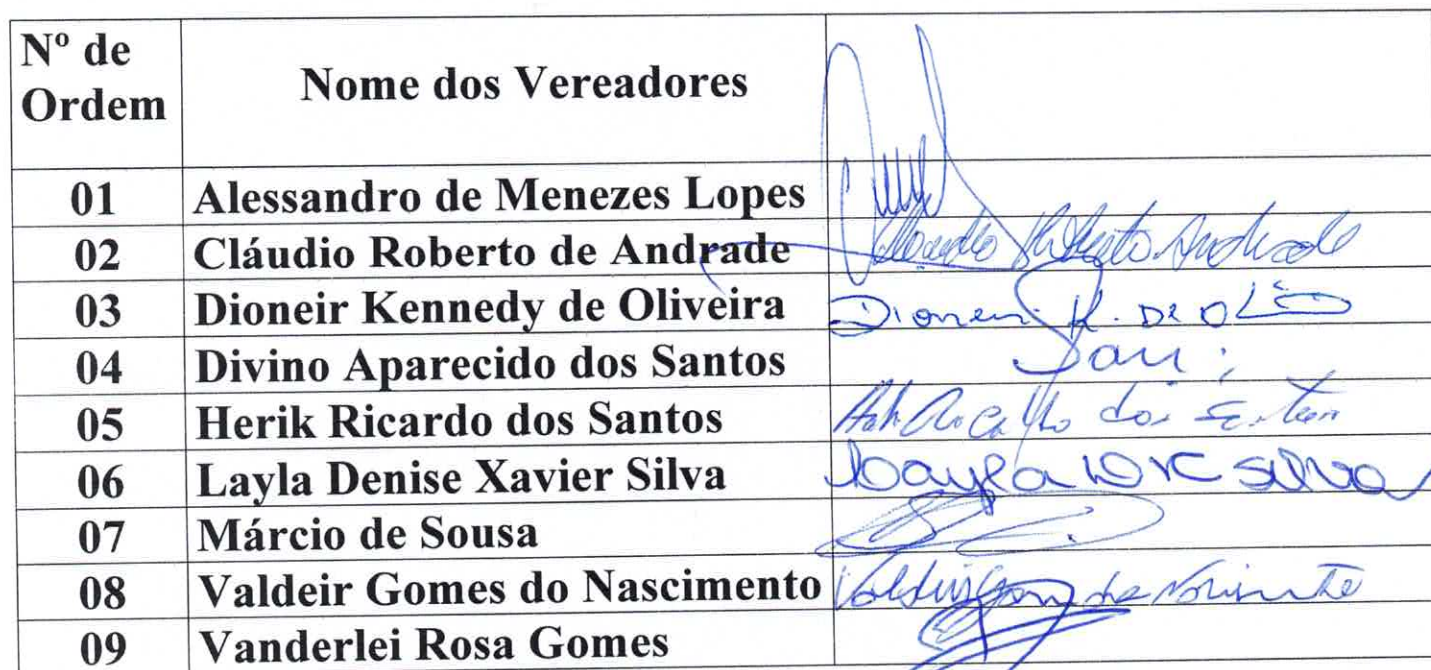 Nº de
Ordem
Nome dos Vereadores
01 Alessandro de Menezes Lopes
02 Cláudio Roberto de Andrade Roberto Andrade
03 Dioneir Kennedy de Oliveira Dioneir K. DE
04 Divino Aparecido dos Santos
05 Herik Ricardo dos Santos dos
06 Layla Denise Xavier Silva Layla D X Silva
07 Márcio de Sousa
08 Valdeir Gomes do Nascimento Valdeir
09 Vanderlei Rosa Gomes